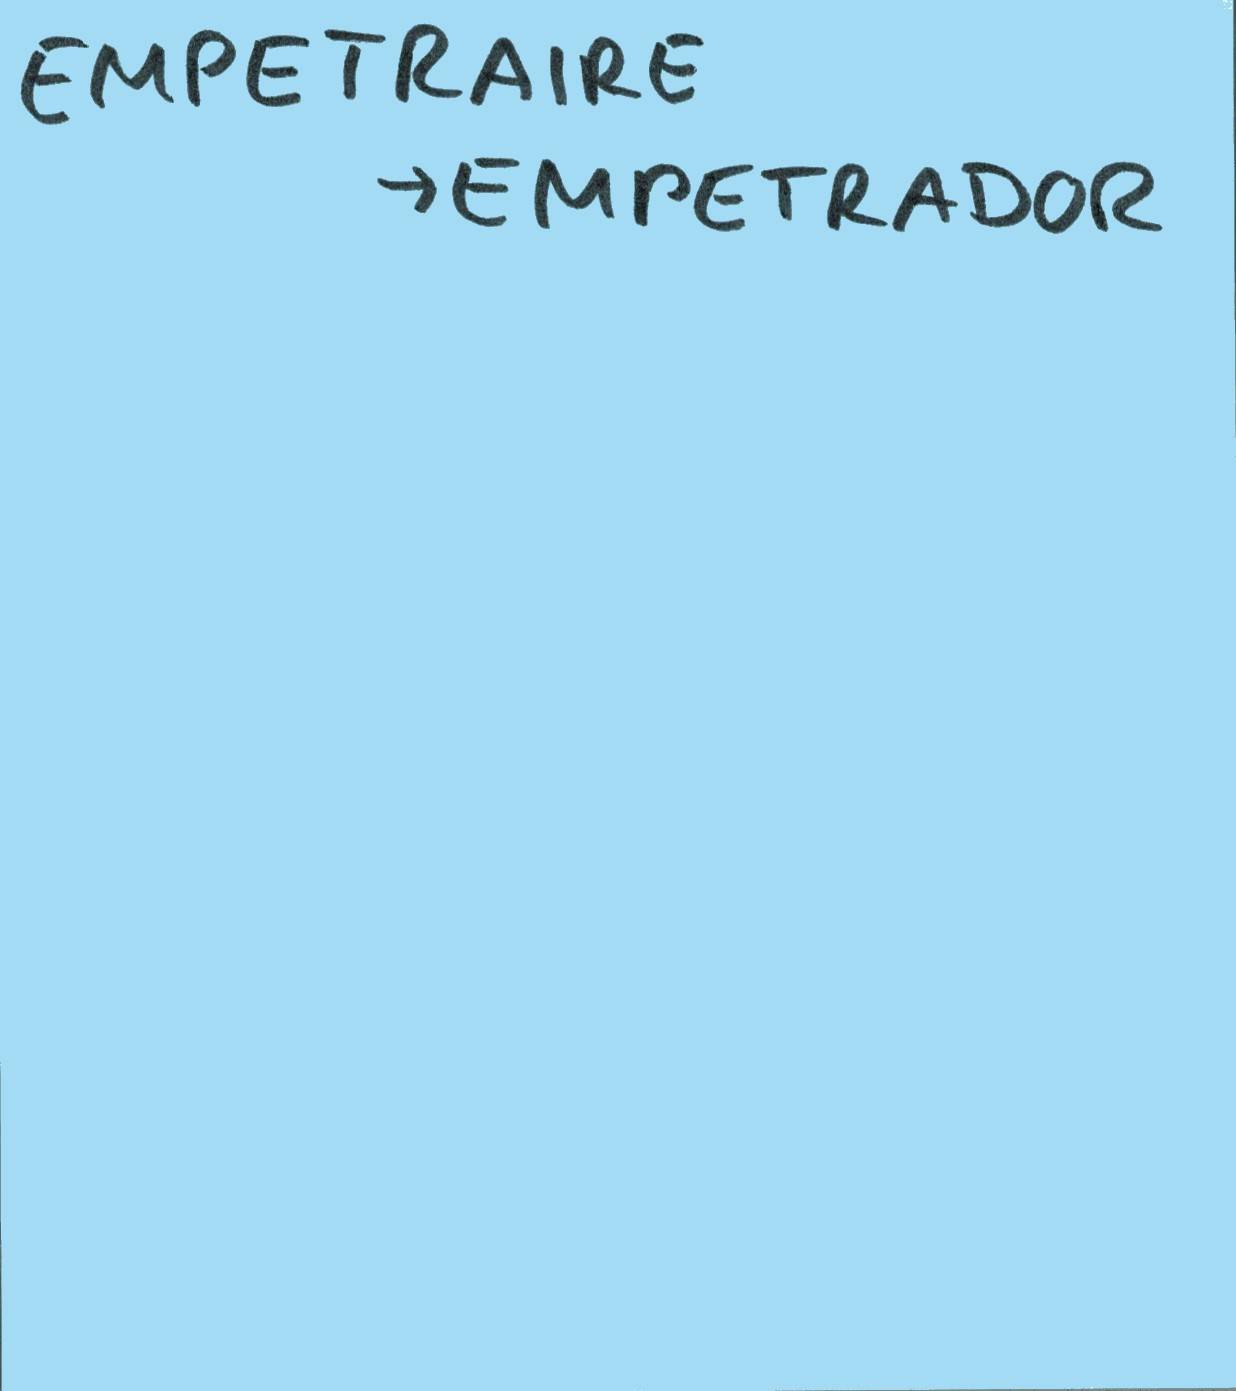 EMPETRAIRE
→EMPETRADOR